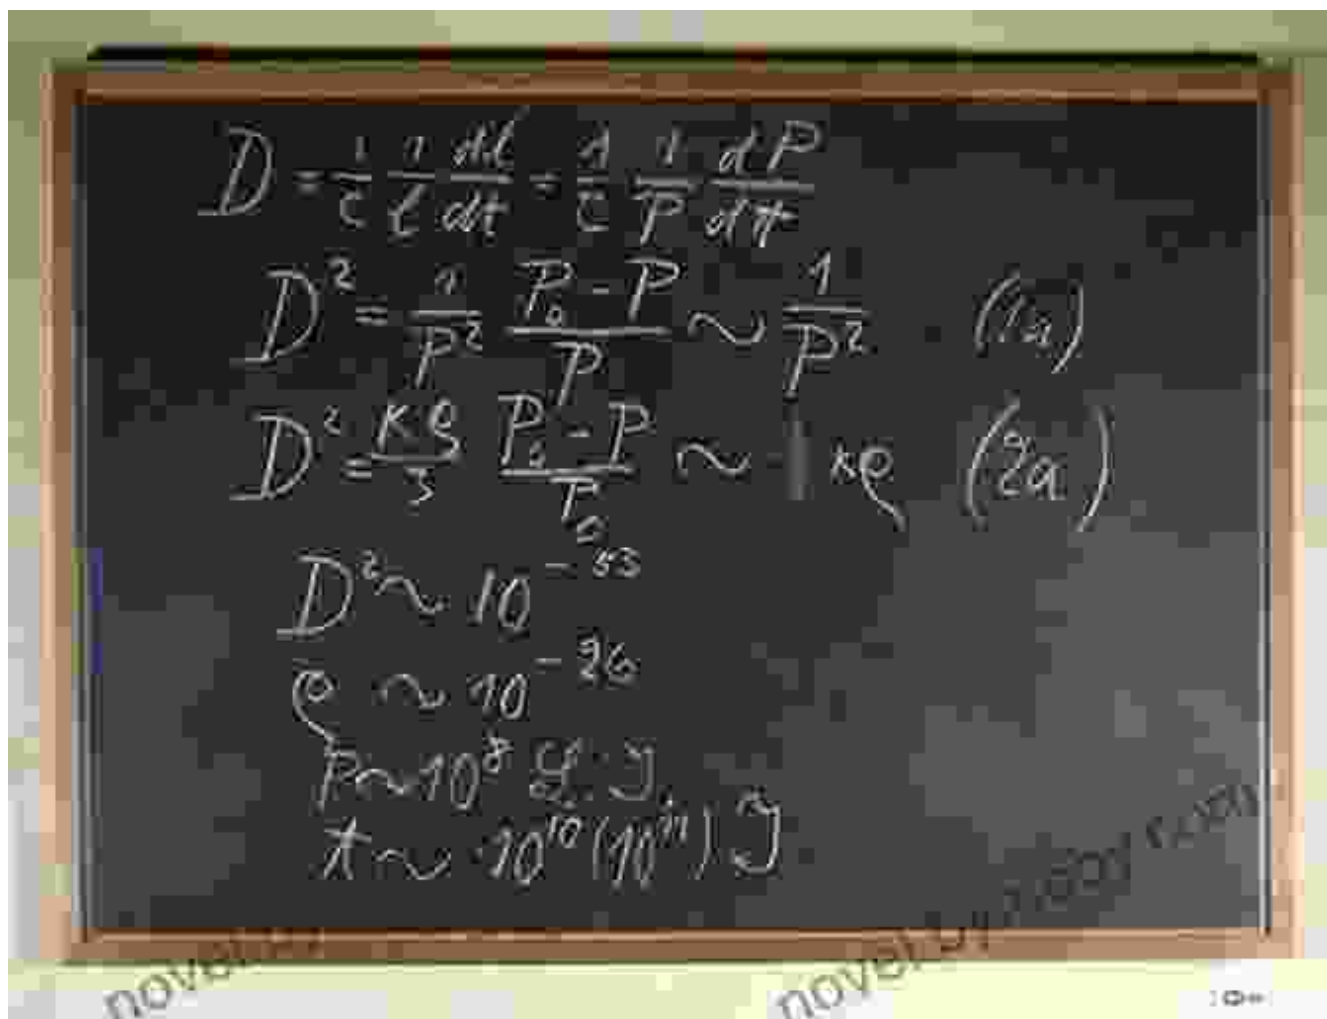 D = 1/c 1/l dl/dt = 1/c 1/P dP/dt
D² = 1/P² (P₀-P)/P ~ 1/P² (1a)
D² = κρ/3 (P₀-P)/P₀ ~ κρ (2a)
D² ~ 10⁻⁵³
ρ ~ 10⁻²⁶
P ~ 10⁸ L.J.
t ~ 10¹⁰ (10¹¹) J